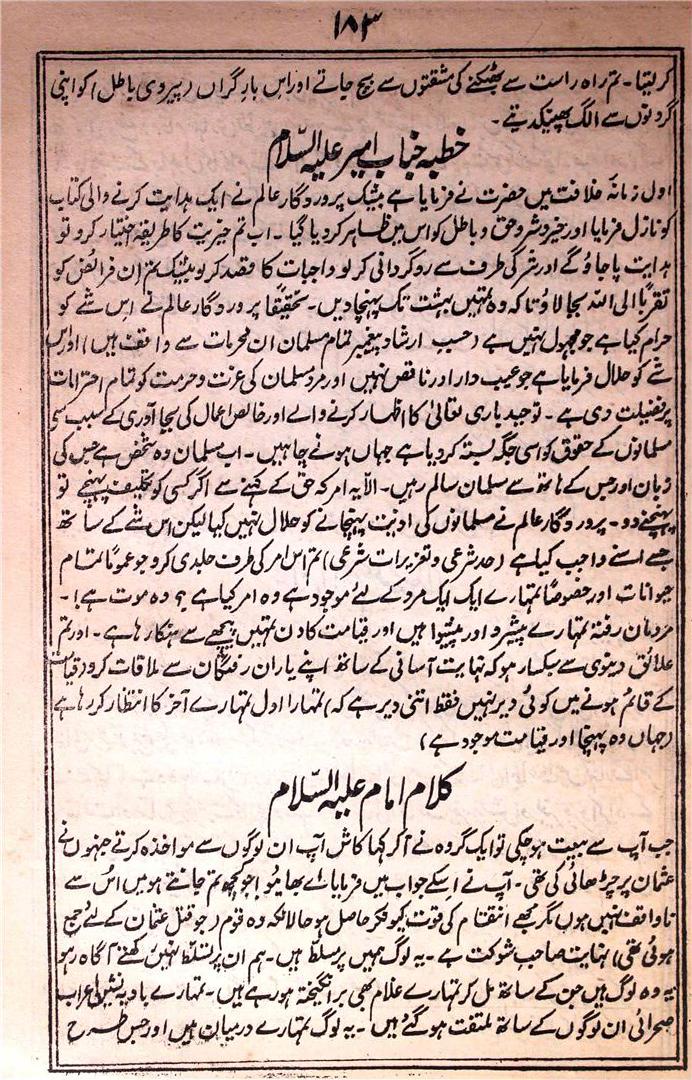 ۱۸۳
کرلیتا۔ تم راہ راست سے بھٹکنے کی مشقتوں سے بچ جاتے اور اس بار گراں (پیروی باطل) کو اپنی
گردنوں سے الگ پھینکدیتے۔
خطبہ جناب امیر علیہ السّلام
اول زمانہ خلافت میں حضرت نے فرمایا ہے بیشک پروردگار عالم نے ایک ہدایت کرنے والی کتاب
کو نازل فرمایا اور خیر و شر و حق و باطل کو اس میں ظاہر کر دیا گیا۔ اب تم خیریت کا طریقہ اختیار کرو تو
ہدایت پا جاؤ گے اور شر کی طرف سے روگردانی کر لو واجبات کا قصد کر لو بیشک تم ان فرائض کو
تقرباً الی اللہ بجا لاؤ تاکہ وہ تمہیں بہشت تک پہنچا دیں۔ تحقیقاً پروردگار عالم نے اس شے کو
حرام کیا ہے جو مجہول نہیں ہے (حسب ارشاد پیغمبر تمام مسلمان ان محرمات سے واقف ہیں) اور اس
شے کو حلال فرمایا ہے جو عیب دار اور ناقص نہیں اور مرد مسلمان کی عزت و حرمت کو تمام احترامات
پر فضیلت دی ہے۔ توحید باری تعالیٰ کا اظہار کرنے والے اور خالص اعمال کی بجا آوری کے سبب سے
مسلمانوں کے حقوق کو اسی جگہ بستہ کر دیا ہے جہاں ہونے چاہیں۔ اب مسلمان وہ شخص ہے جس کی
زبان اور جس کے ہاتھ سے مسلمان سالم رہیں۔ الا یہ امر کہ حق کے کہنے سے اگر کسی کو تکلیف پہنچے تو
پہنچنے دو۔ پروردگار عالم نے مسلمانوں کی اذیت پہنچانے کو حلال نہیں کیا لیکن اس شے کے ساتھ
جسے اسنے واجب کیا ہے (حد شرعی و تعزیرات شرعی) تم اس امر کی طرف جلدی کرو جو عموماً تمام
حیوانات اور خصوصاً تمہارے ایک ایک مرد کے لئے موجود ہے وہ امر کیا ہے؟ وہ موت ہے!۔
مردمان رفتہ تمہارے پیشرو اور پیشوا ہیں اور قیامت کا دن تمہیں پیچھے سے ہنکا رہا ہے۔ اور تم
علائق دنیوی سے سبکسار ہو کہ نہایت آسانی کے ساتھ اپنے یاران رفتگان سے ملاقات کرو (قیامت
کے قائم ہونے میں کوئی دیر نہیں فقط اتنی دیر ہے کہ) تمہارا اول تمہارے آخر کا انتظار کر رہا ہے
(جہاں وہ پہنچا اور قیامت موجود ہے)
کلام امام علیہ السّلام
جب آپ سے بیعت ہو چکی تو ایک گروہ نے آ کر کہا کاش آپ ان لوگوں سے مواخذہ کرتے جنہوں نے
عثمان پر چڑھائی کی تھی۔ آپ نے اسکے جواب میں فرمایا اے بھائیو! جو کچھ تم جانتے ہو میں اس سے
ناواقف نہیں ہوں مگر مجھے انتقام کی قوت کیونکر حاصل ہو حالانکہ وہ قوم (جو قتل عثمان کے لئے جمع
ہوئی تھی) نہایت صاحب شوکت ہے۔ یہ لوگ ہمیں پر مسلط ہیں۔ ہم ان پر تسلط نہیں رکھتے آگاہ رہو
یہ وہ لوگ ہیں جن کے ساتھ مل کر تمہارے غلام بھی برانگیختہ ہو رہے ہیں۔ تمہارے بادیہ نشیں اعراب
صحرائی ان لوگوں کے ساتھ ملتفت ہو گئے ہیں۔ یہ لوگ تمہارے درمیان ہیں اور جس طرح